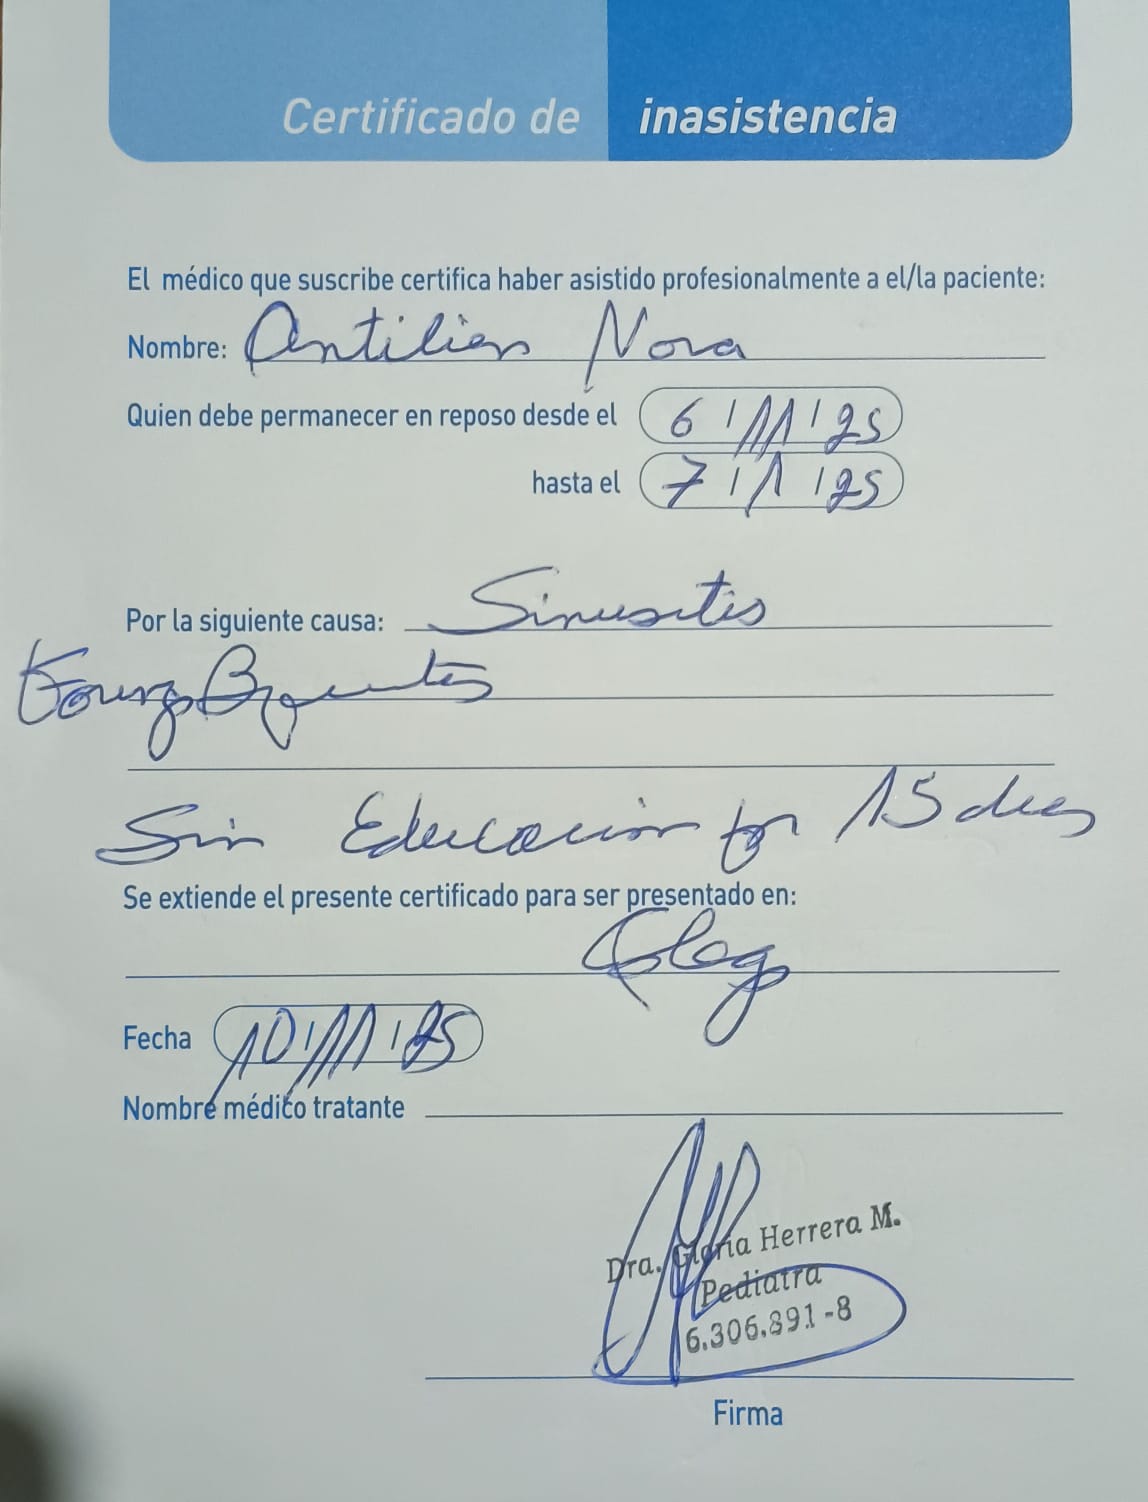 Certificado de inasistencia
El médico que suscribe certifica haber asistido profesionalmente a el/la paciente:
Nombre: Nova
Quien debe permanecer en reposo desde el 6/11/25
hasta el 7/11/25
Por la siguiente causa: Sinusitis
Sin Educacion por 15 dias
Se extiende el presente certificado para ser presentado en:
Fecha 10/11/25
Nombre médico tratante
Dra. Gloria Herrera M.
Pediatra
6.306.891-8
Firma